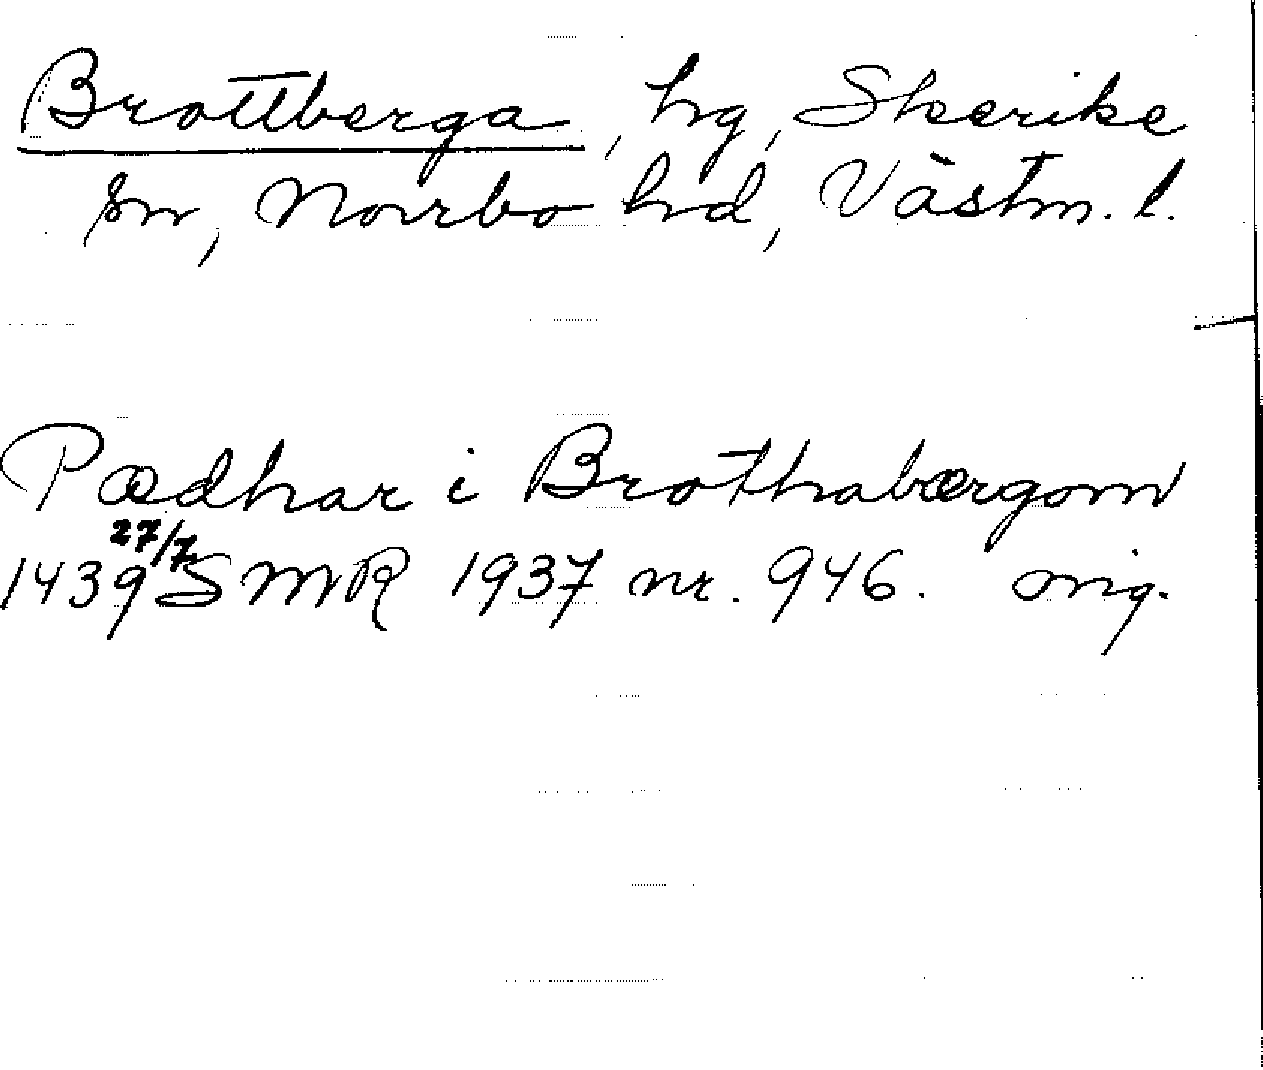 Brottberga, hg, Skerike
sn, Norrbo hd, Västm. l.
Pædhar i Brothabærgom
27/7
1439 SMR 1937 nr. 946. orig.